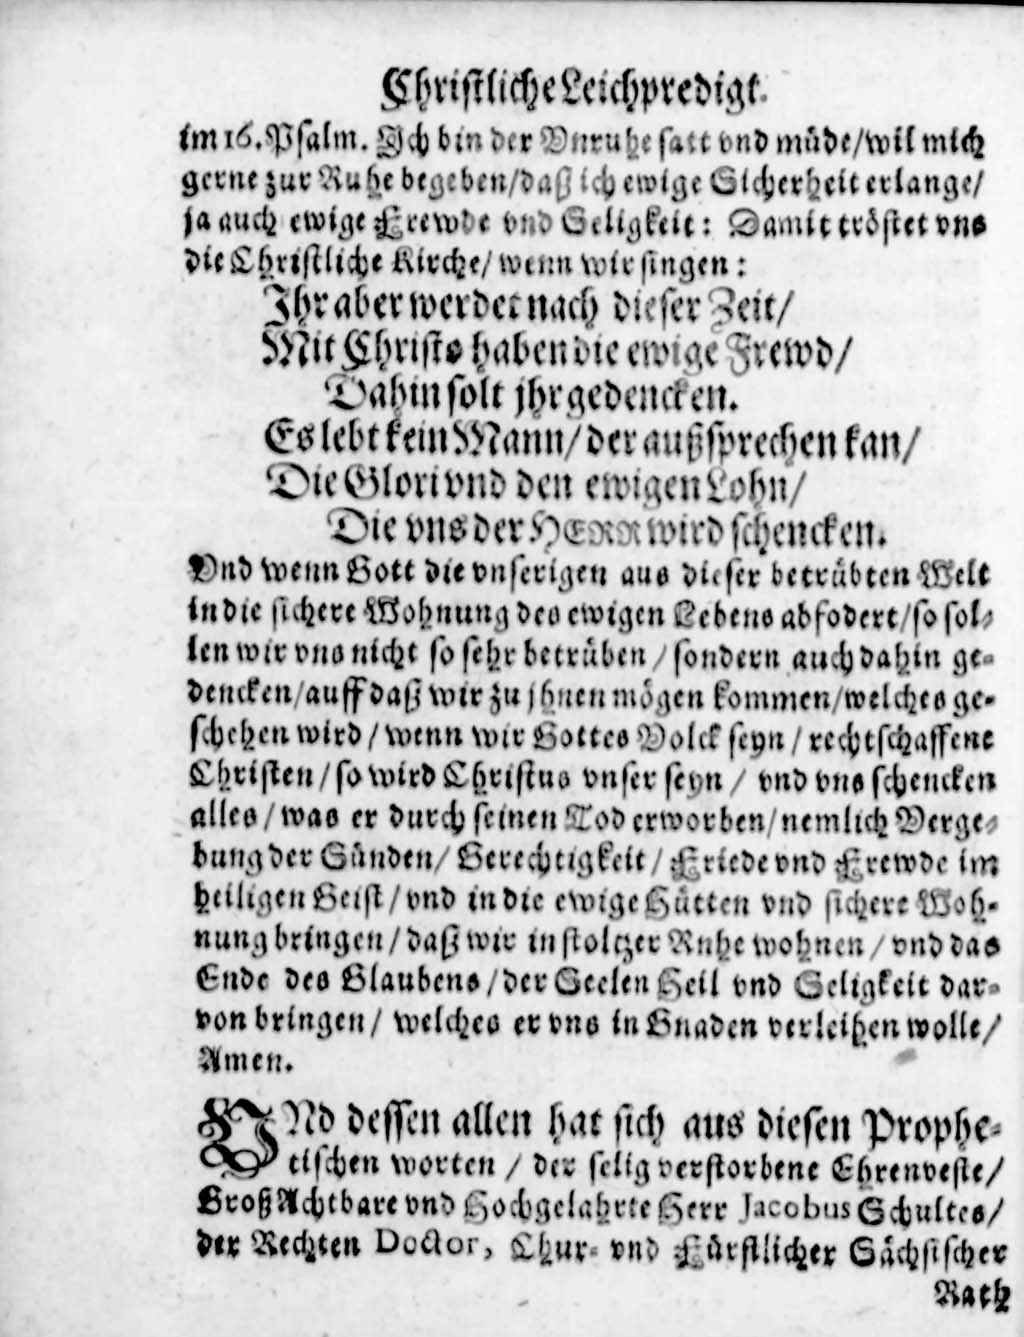 Christliche Leichpredigt.
im 16. Psalm. Ich bin der Vnruhe satt vnd müde/wil mich
gerne zur Ruhe begeben/daß ich ewige Sicherheit erlange/
ja auch ewige Frewde vnd Seligkeit: Damit tröstet vns
die Christliche Kirche/ wenn wir singen:
Ihr aber werdet nach dieser Zeit/
Mit Christo haben die ewige Frewd/
Dahin solt jhr gedencken.
Es lebt kein Mann/ der außsprechen kan/
Die Glori vnd den ewigen Lohn/
Die vns der HERR wird schencken.
Vnd wenn Gott die vnserigen aus dieser betrübten Welt
in die sichere Wohnung des ewigen Lebens abfodert/so sol-
len wir vns nicht so sehr betrüben/sondern auch dahin ge-
dencken/auff daß wir zu jhnen mögen kommen/welches ge-
schehen wird/wenn wir Gottes Volck seyn/rechtschaffene
Christen/so wird Christus vnser seyn/ vnd vns schencken
alles/was er durch seinen Tod erworben/nemlich Verge-
bung der Sünden/ Gerechtigkeit/ Friede vnd Frewde im
heiligen Geist/vnd in die ewige Hütten vnd sichere Woh-
nung bringen/daß wir in stoltzer Ruhe wohnen/vnd das
Ende des Glaubens/der Seelen Heil vnd Seligkeit dar-
von bringen/ welches er vns in Gnaden verleihen wolle/
Amen.
VNd dessen allen hat sich aus diesen Prophe-
tischen worten/ der selig verstorbene Ehrenveste/
GroßAchtbare vnd Hochgelahrte Herr Jacobus Schultes/
der Rechten Doctor, Chur- vnd Fürstlicher Sächsischer
Rath